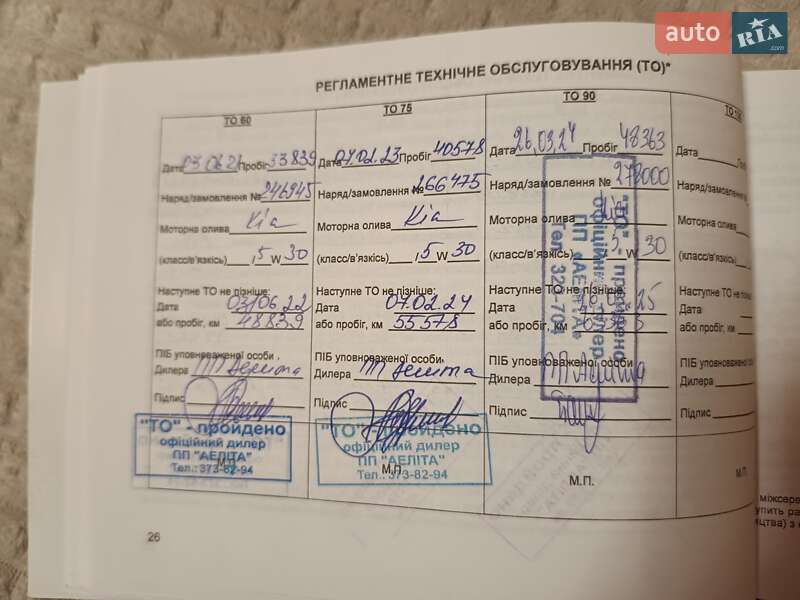 auto RIA .com
РЕГЛАМЕНТНЕ ТЕХНІЧНЕ ОБСЛУГОВУВАННЯ (ТО)*
ТО 60
Дата 03.06.21 Пробіг 33839
Наряд/замовлення № 246945
Моторна олива Kia
(класс/в'язкість) , 5 W 30
Наступне ТО не пізніше:
Дата 03/06.22
або пробіг, км 48839
ПІБ уповноваженої особи
Дилера ПП Аеліта
Підпис
"ТО" - пройдено
офіційний дилер
ПП "АЕЛІТА"
Тел.: 373-82-94
М.П.
ТО 75
Дата 07.02.23 Пробіг 40578
Наряд/замовлення № 266475
Моторна олива Kia
(класс/в'язкість) , 5 W 30
Наступне ТО не пізніше:
Дата 07.02.24
або пробіг, км 55578
ПІБ уповноваженої особи
Дилера ПП Аеліта
Підпис
"ТО" - пройдено
офіційний дилер
ПП "АЕЛІТА"
Тел.: 373-82-94
М.П.
ТО 90
Дата 26.03.24 Пробіг 48363
Наряд/замовлення № 278000
Моторна олива Kia
(класс/в'язкість) , 5 W 30
Наступне ТО не пізніше:
Дата 25
або пробіг, км
ПІБ уповноваженої особи
Дилера ПП Аеліта
Підпис
"ТО" - пройдено
офіційний дилер
ПП "АЕЛІТА"
М.П.
Дата
Наряд/замовлення №
Моторна олива
(класс/в'язкість)
Наступне ТО не пізні
Дата
або пробіг, км
ПІБ уповноваженої о
Дилера
Підпис
М.П.
міжсерв
26